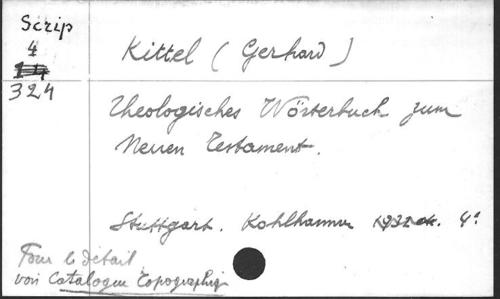 Scrip
4
324
Kittel (Gerhard)
Theologisches Wörterbuch zum
Neuen Testament.
Stuttgart. Kohlhammer 4°
Pour le détail
voir Catalogue Topographique